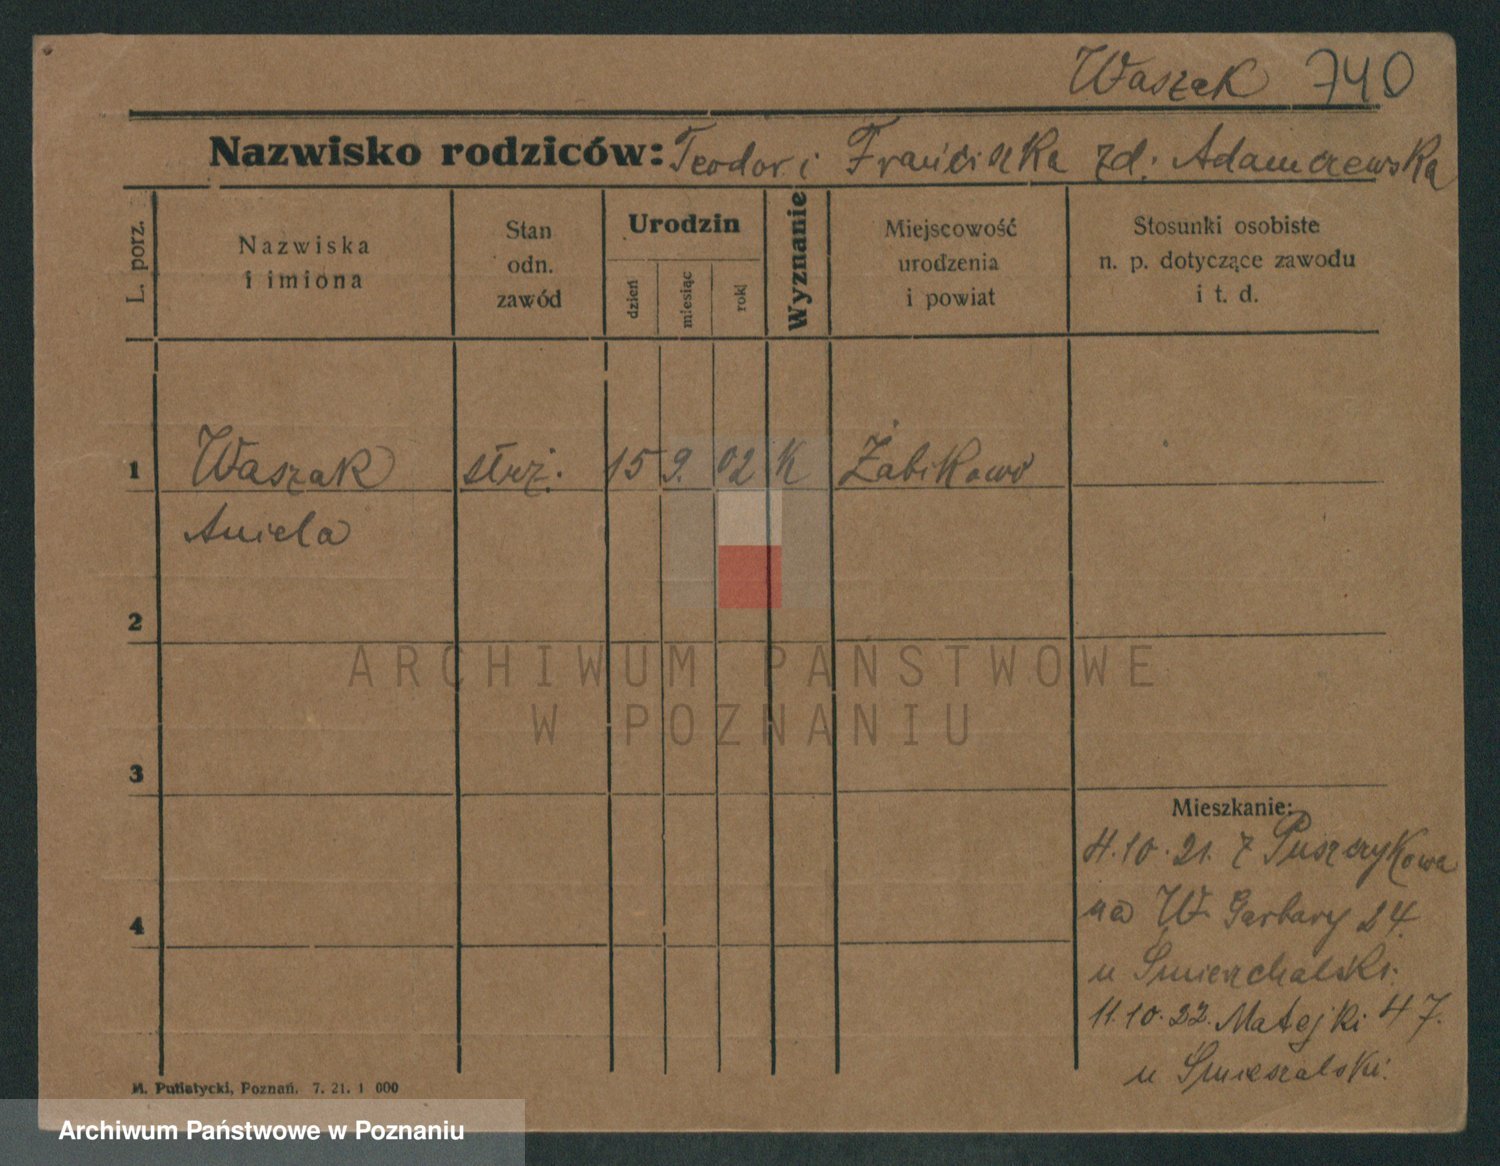 Waszak 740
Nazwisko rodziców: Teodor i Franciszka zd. Adamczewska
L. porz.
Nazwiska
i imiona
Stan
odn.
zawód
Urodzin
dzień
miesiąc
rok
Wyznanie
Miejscowość
urodzenia
i powiat
Stosunki osobiste
n. p. dotyczące zawodu
i t. d.
1 Waszak służ. 15 9. 02 K Żabikowo
Aniela
2
3
4
ARCHIWUM PAŃSTWOWE
W POZNANIU
Mieszkanie:
4.10.21. z Puszczykowa
na W. Garbary 24.
u
11.10.22. Matejki 47.
u
M. Putiatycki, Poznań. 7. 21. 1 000
Archiwum Państwowe w Poznaniu